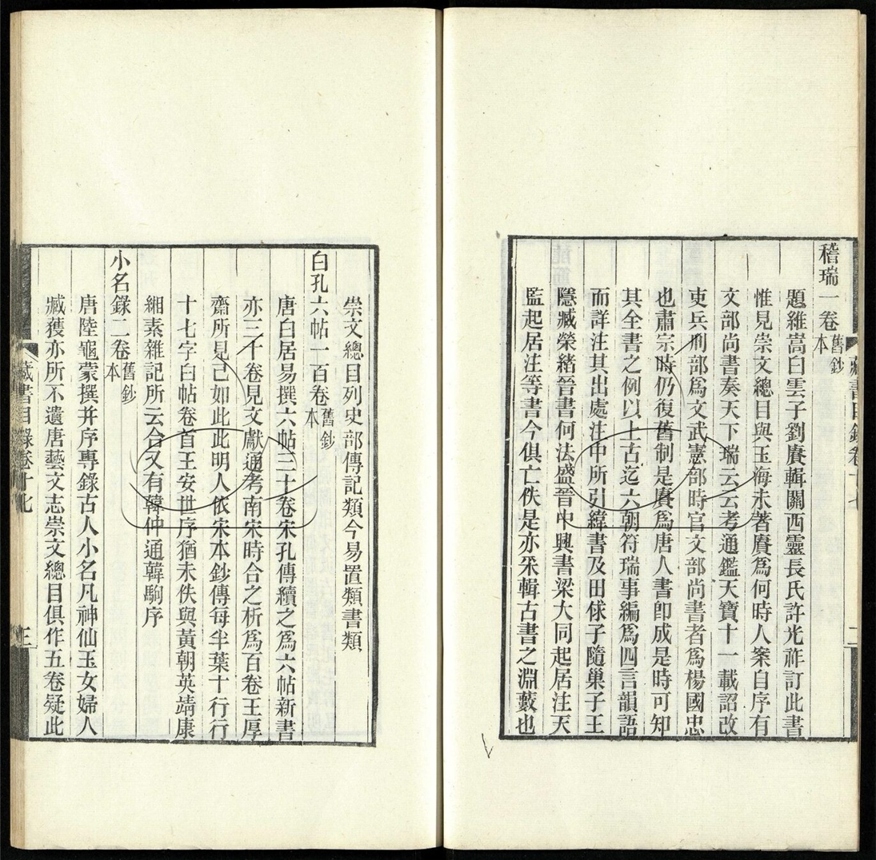 稽瑞一卷舊鈔本
題維嵩白雲子劉賡輯關西靈長氏許光祚訂此書
惟見崇文總目與玉海未著賡爲何時人案自序有
文部尚書奏天下瑞云云考通鑑天寶十一載詔改
吏兵刑部爲文武憲部時官文部尚書者爲楊國忠
也肅宗時仍復舊制是賡爲唐人書卽成是時可知
其全書之例以上古迄六朝符瑞事編爲四言韻語
而詳注其出處注中所引緯書及田俅子隨巢子王
隱臧榮緒晉書何法盛晉中興書梁大同起居注天
監起居注等書今俱亡佚是亦采輯古書之淵藪也
藏書目錄卷十七
二
崇文總目列史部傳記類今易置類書類
白孔六帖一百卷舊鈔本
唐白居易撰六帖三十卷宋孔傳續之爲六帖新書
亦三十卷見文獻通考南宋時合之析爲百卷王厚
齋所見已如此此明人依宋本鈔傳每半葉十行行
十七字白帖卷首王安世序猶未佚與黃朝英靖康
緗素雜記所云合又有韓仲通韓駒序
小名錄二卷舊鈔本
唐陸龜蒙撰并序專錄古人小名凡神仙玉女婦人
臧獲亦所不遺唐藝文志崇文總目俱作五卷疑此
藏書目錄卷十七
三